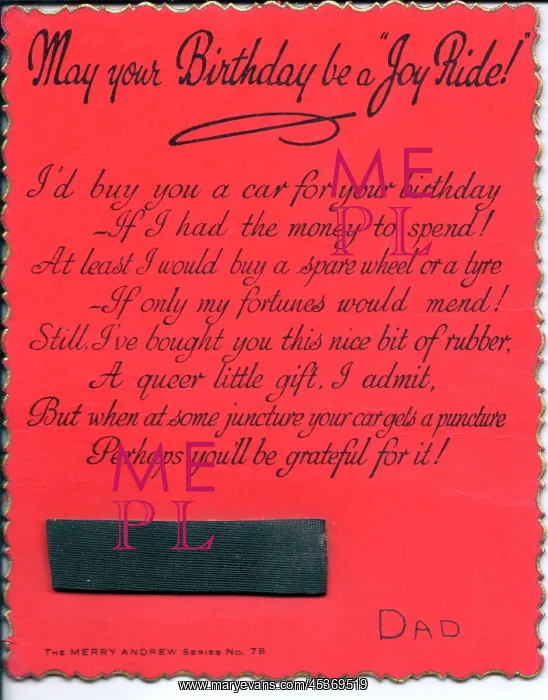 May your Birthday be a "Joy Ride!"
I'd buy you a car for your birthday
–If I had the money to spend!
At least I would buy a spare wheel or a tyre
–If only my fortunes would mend!
Still, I've bought you this nice bit of rubber,
A queer little gift, I admit,
But when at some juncture your car gets a puncture
Perhaps you'll be grateful for it!
ME
PL
ME
PL
DAD
THE MERRY ANDREW SERIES NO. 78
www.maryevans.com/45969519